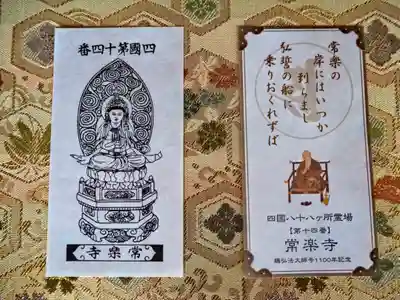 四國第十四番
常樂寺
常楽の
岸にはいつか
到らまし
弘誓の船に
乗りおくれずば
四國八十八ヶ所霊場
【第十四番】
常楽寺
賜弘法大師号1100年記念